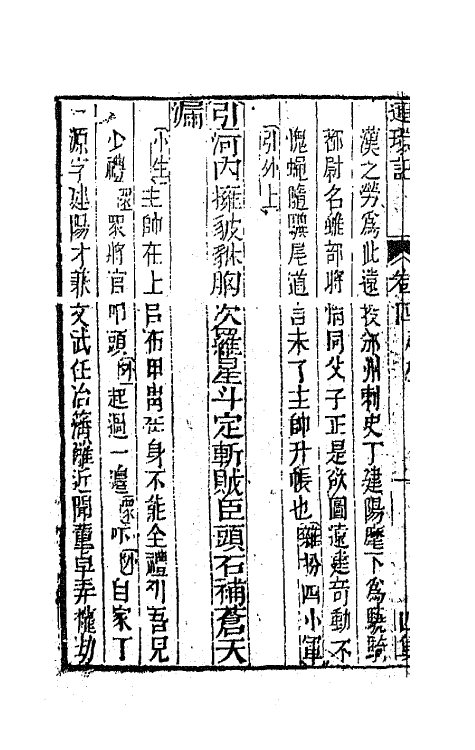 連環記 卷四
漢之勞爲此遠投荆州刺史丁建陽麾下爲驍騎
都尉名雖部將情同父子正是欲圖遠建奇動不
愧蠅隨驥尾道言未了主帥升帳也雜扮四小軍
引外上
引河内擁貔貅胸次羅星斗定斬賊臣頭石補蒼天
漏
小生主帥在上呂布甲冑在身不能全禮外吾兒
少禮衆將官叩頭外起過一邊衆吓外自家丁
源字建陽才兼文武任冶蕃離近聞董卓弄權劫